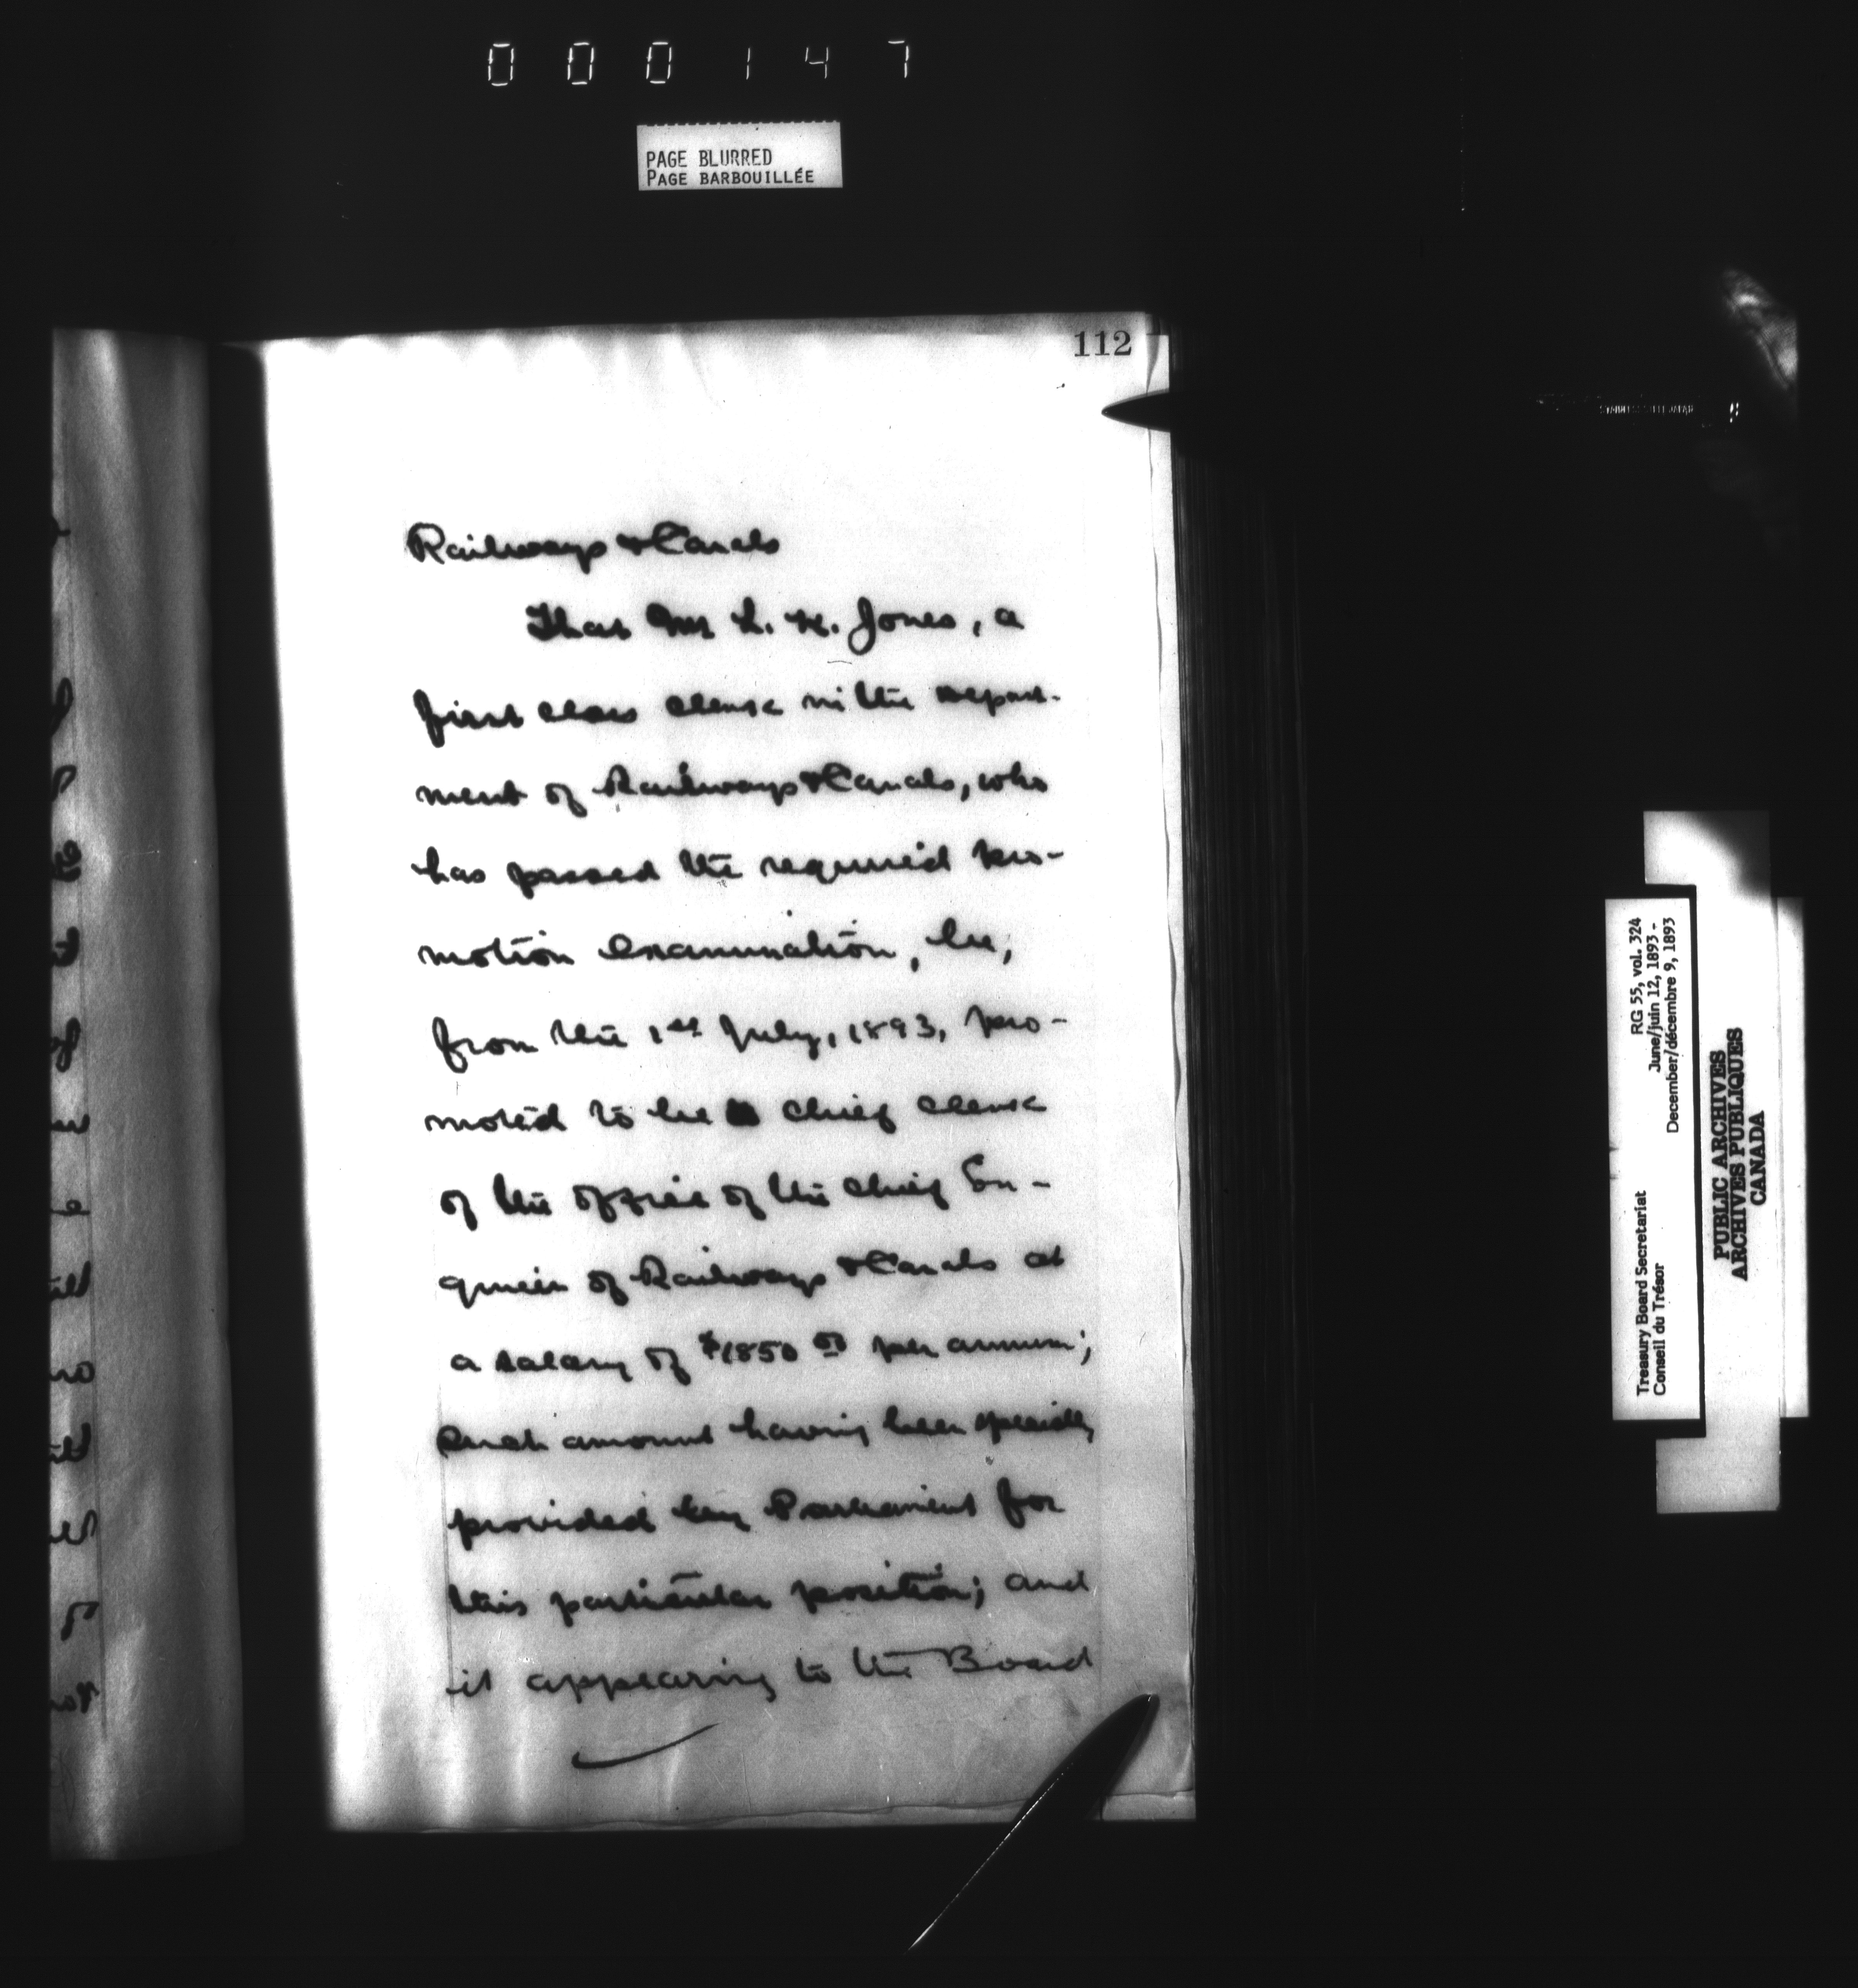 000147
PAGE BLURRED
PAGE BARBOUILLÉE
112
Railways & Canals
That Mr L. K. Jones, a
first class clerk in the Depart-
ment of Railways & Canals, who
has passed the required pro-
motion examination, be,
from the 1st July, 1893, pro-
moted to be chief clerk
of the office of the Chief En-
gineer of Railways & Canals at
a salary of $1850 00 per annum;
such amount having been specially
provided by Parliament for
this particular position; and
it appearing to the Board
RG 55, vol. 324
June/juin 12, 1893 -
December/décembre 9, 1893
Treasury Board Secretariat
Conseil du Trésor
PUBLIC ARCHIVES
ARCHIVES PUBLIQUES
CANADA